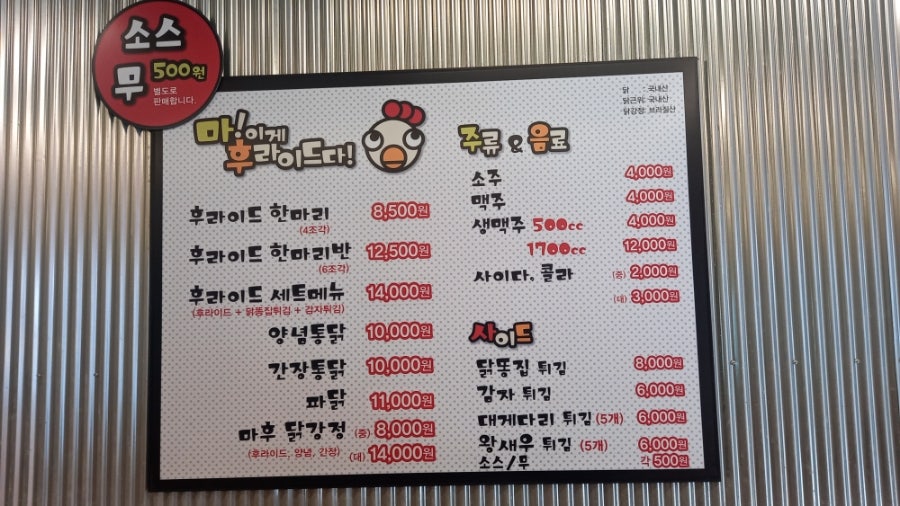 소스
무 500원
별도로
판매합니다.
닭 : 국내산
닭근위: 국내산
닭강정: 브라질산
마!이게
후라이드다!
후라이드 한마리 8,500원
(4조각)
후라이드 한마리반 12,500원
(6조각)
후라이드 세트메뉴 14,000원
(후라이드 + 닭똥집튀김 + 감자튀김)
양념통닭 10,000원
간장통닭 10,000원
파닭 11,000원
마후 닭강정 (중) 8,000원
(후라이드, 양념, 간장) (대) 14,000원
주류 & 음료
소주 4,000원
맥주 4,000원
생맥주 500cc 4,000원
1700cc 12,000원
사이다. 콜라 (중) 2,000원
(대) 3,000원
사이드
닭똥집 튀김 8,000원
감자 튀김 6,000원
대게다리 튀김 (5개) 6,000원
왕새우 튀김 (5개) 6,000원
소스/무 각 500원